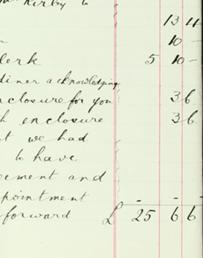 Kirby to
13 11
10 -
Clerk 5 10 -
acknowledging
enclosure for you 3 6
enclosure 3 6
t we had
to have
eement and
pointment
forward £ 25 6 6